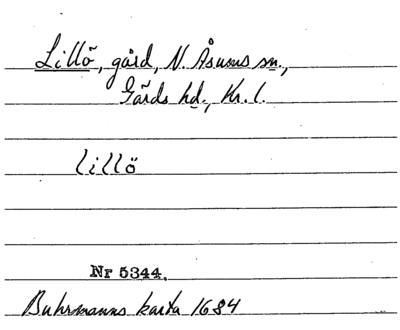 Lillö, gård, N. Åsums sn.,
Gärds hd., Kr. l.
Lillö
Nr 5344.
Buhrmanns karta 1684